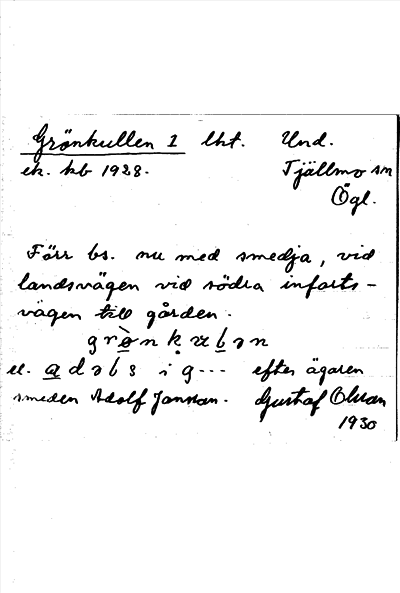 Grönkullen 1 lht. Und.
ek. kb 1928. Tjällmo sn
Ögl.
Förr bs. nu med smedja, vid
landsvägen vid södra infarts-
vägen till gården.
el. efter ägaren
smeden Adolf Jonsson. Gustaf Olsson
1930